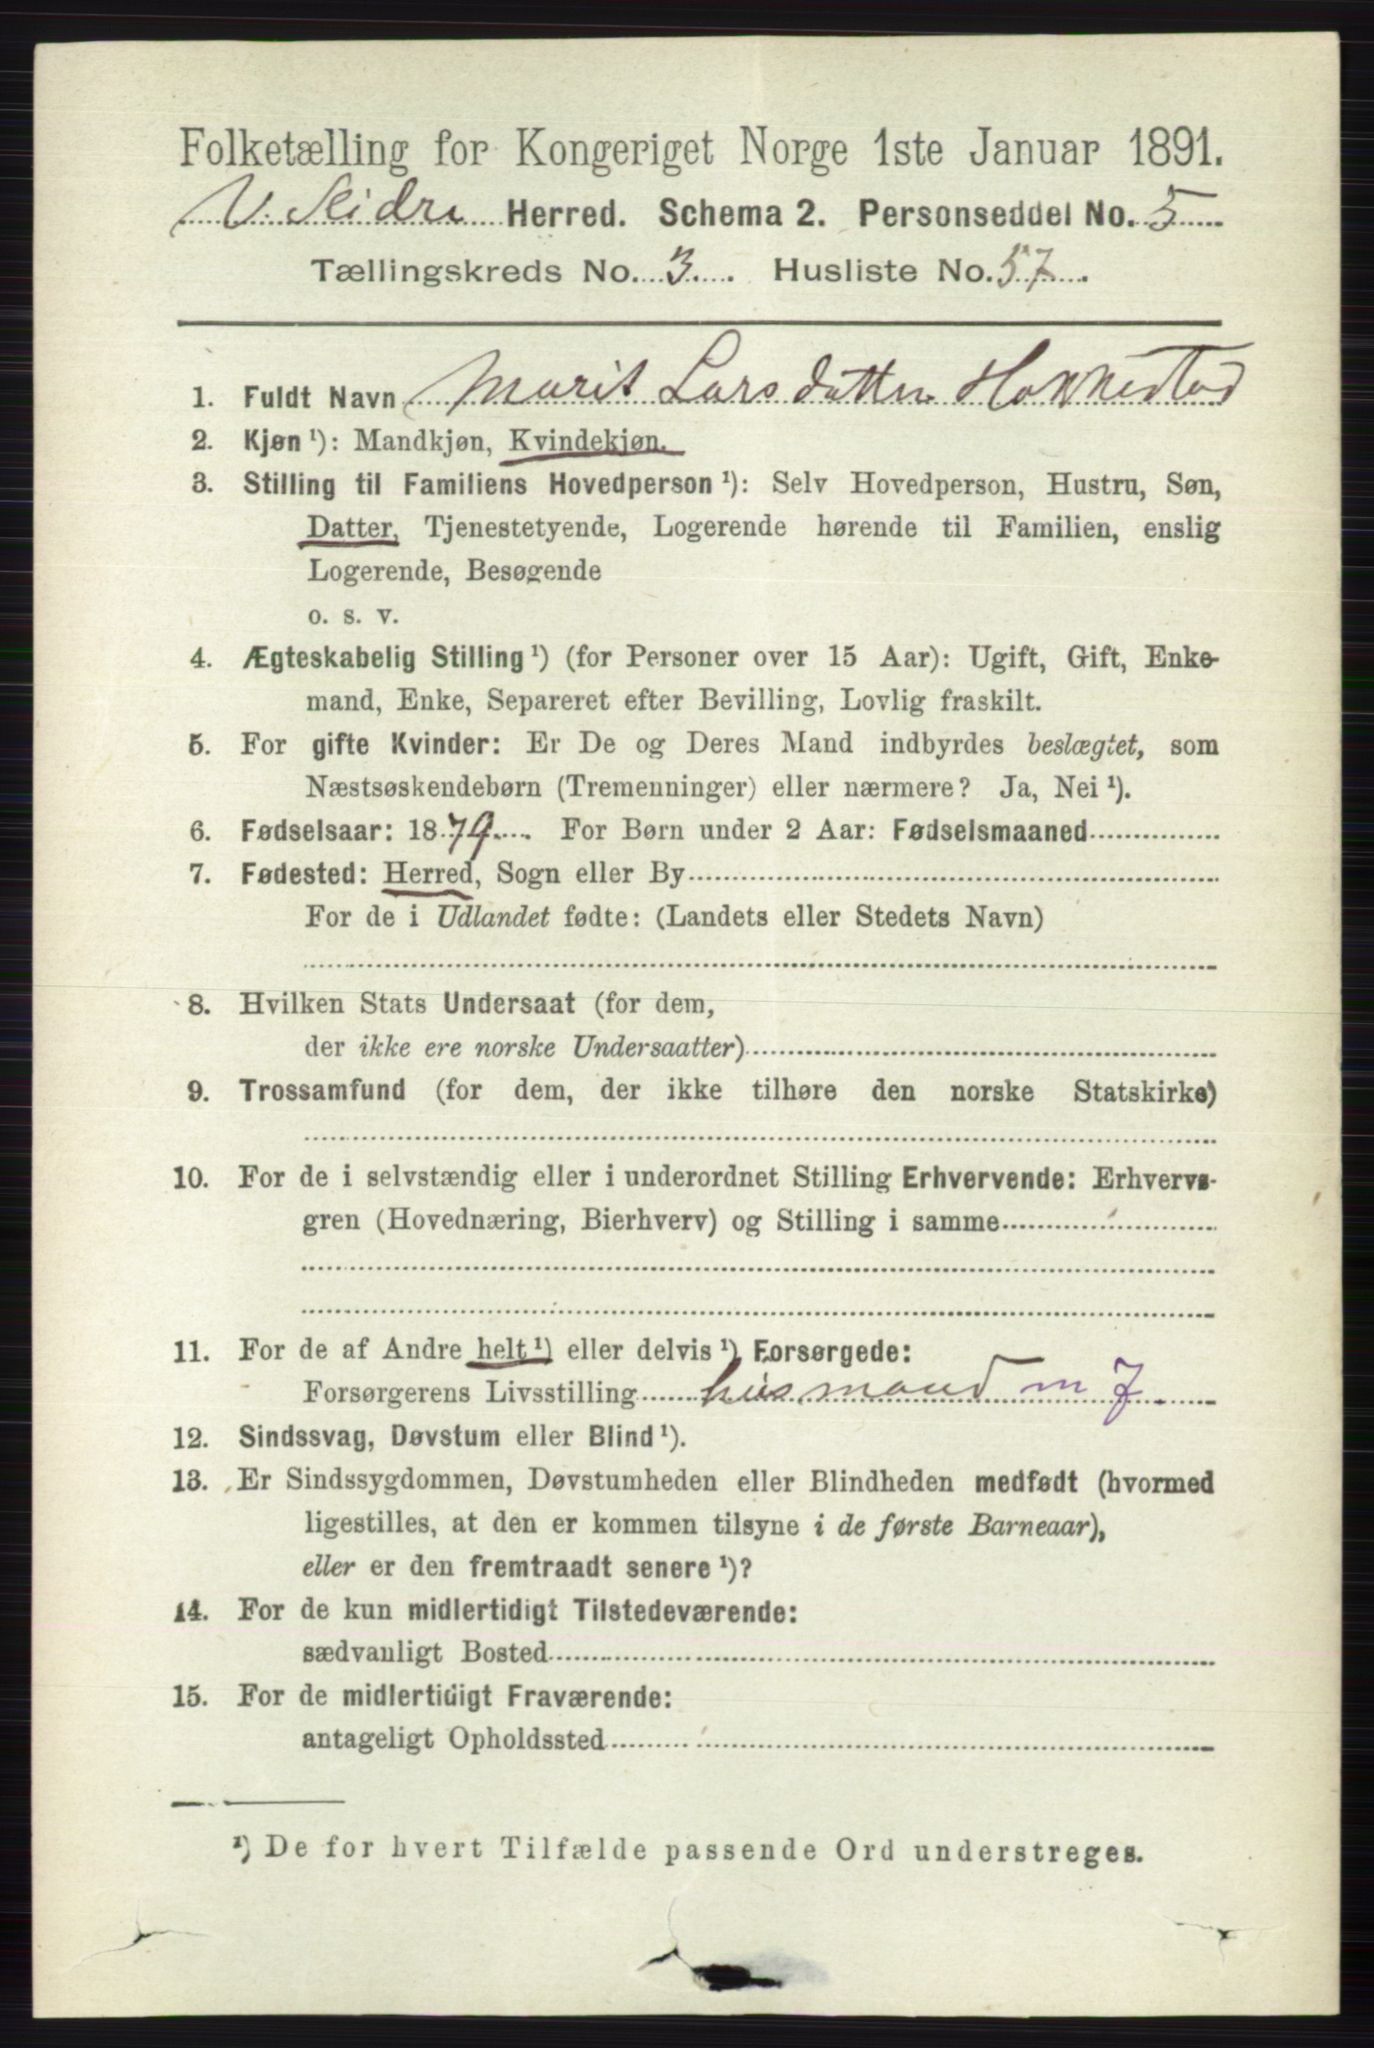 Folketælling for Kongeriget Norge 1ste Januar 1891.
V. Slidre Herred. Schema 2. Personseddel No. 5
Tællingskreds No. 3. Husliste No. 57.
1. Fuldt Navn Marit Larsdatter Hokkestad
2. Kjøn ¹): Mandkjøn, Kvindekjøn.
3. Stilling til Familiens Hovedperson ¹): Selv Hovedperson, Hustru, Søn,
Datter, Tjenestetyende, Logerende hørende til Familien, enslig
Logerende, Besøgende
o. s. v.
4. Ægteskabelig Stilling ¹) (for Personer over 15 Aar): Ugift, Gift, Enke-
mand, Enke, Separeret efter Bevilling, Lovlig fraskilt.
5. For gifte Kvinder: Er De og Deres Mand indbyrdes beslægtet, som
Næstsøskendebørn (Tremenninger) eller nærmere? Ja, Nei ¹).
6. Fødselsaar: 1879. For Børn under 2 Aar: Fødselsmaaned
7. Fødested: Herred, Sogn eller By
For de i Udlandet fødte: (Landets eller Stedets Navn)
8. Hvilken Stats Undersaat (for dem,
der ikke ere norske Undersaatter)
9. Trossamfund (for dem, der ikke tilhøre den norske Statskirke)
10. For de i selvstændig eller i underordnet Stilling Erhvervende: Erhvervs-
gren (Hovednæring, Bierhverv) og Stilling i samme
11. For de af Andre helt ¹) eller delvis ¹) Forsørgede:
Forsørgerens Livsstilling husmand m J.
12. Sindssvag, Døvstum eller Blind ¹).
13. Er Sindssygdommen, Døvstumheden eller Blindheden medfødt (hvormed
ligestilles, at den er kommen tilsyne i de første Barneaar),
eller er den fremtraadt senere ¹)?
14. For de kun midlertidigt Tilstedeværende:
sædvanligt Bosted
15. For de midlertidigt Fraværende:
antageligt Opholdssted
¹) De for hvert Tilfælde passende Ord understreges.